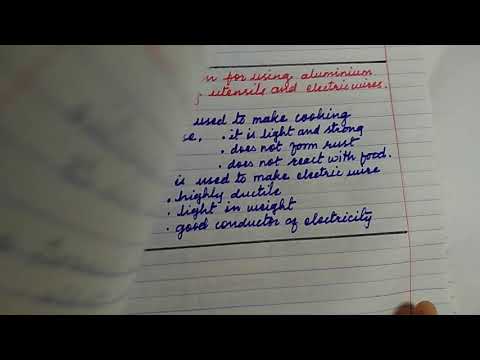 for using aluminium
utensils and electric wires.
used to make cooking
• it is light and strong
• does not form rust
• does not react with food.
is used to make electric wire
• highly ductile
• light in weight
• good conductor of electricity